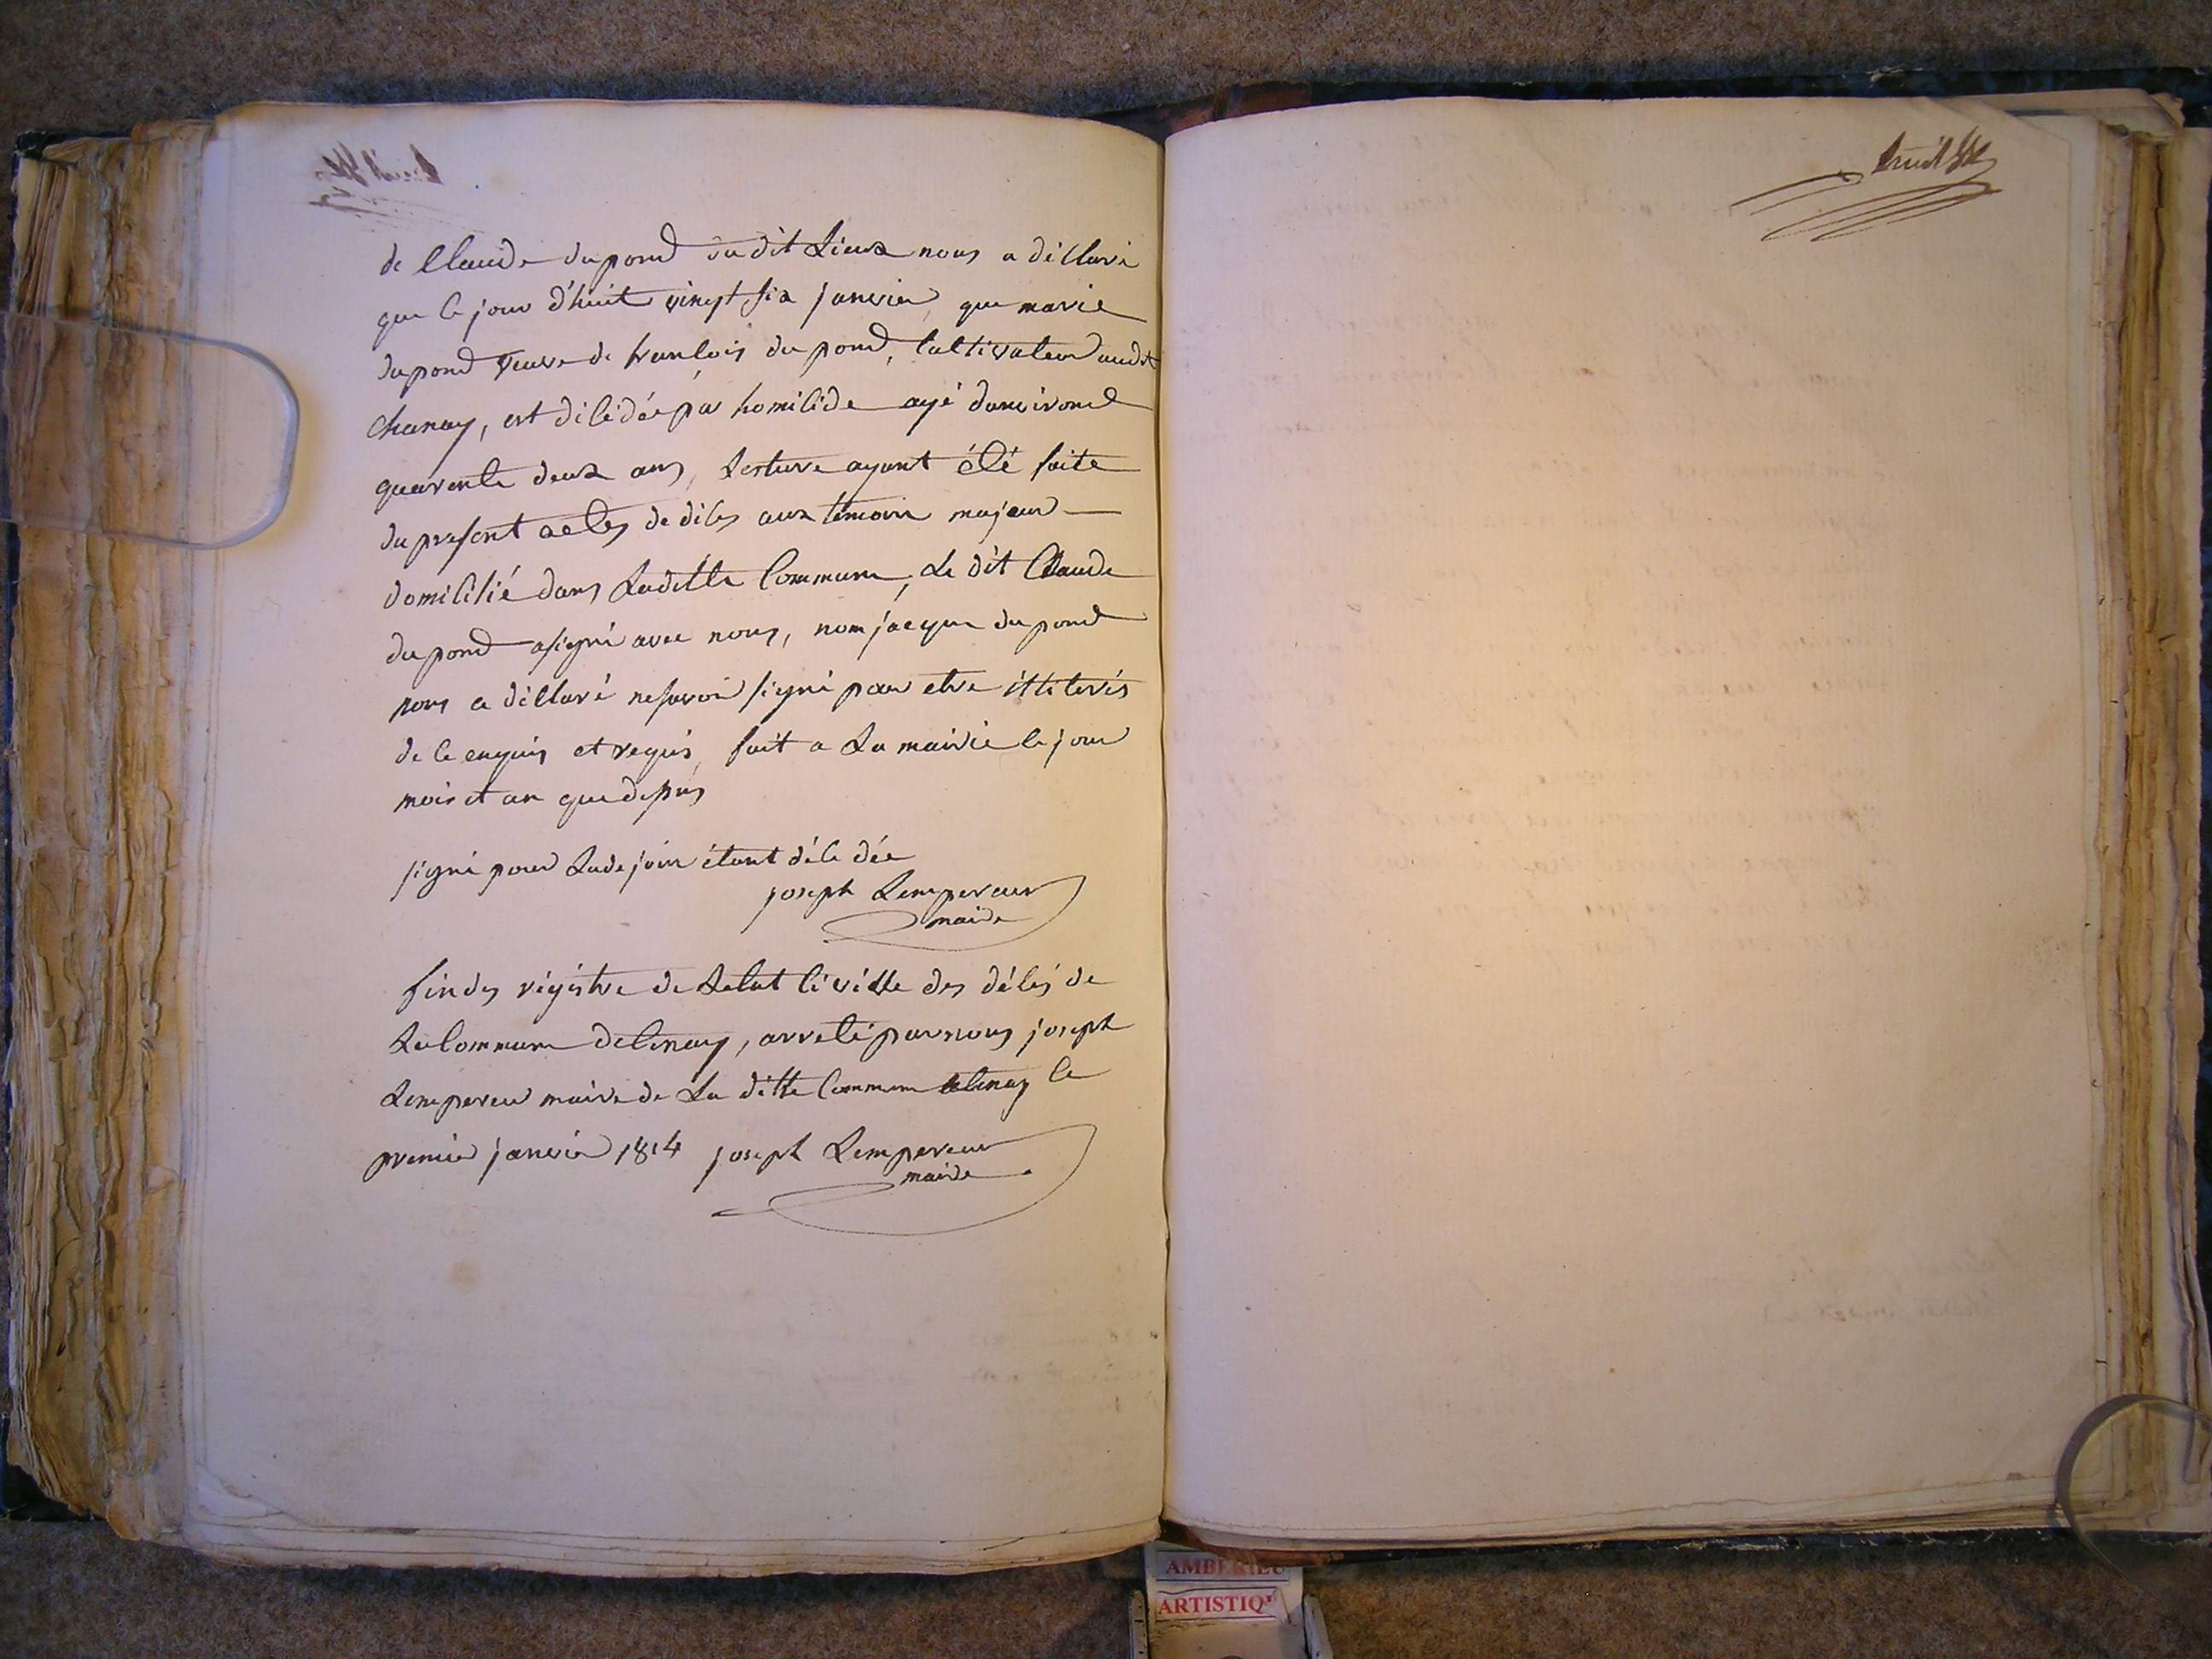 de Claude dupond dudit Lieux nous a déClaré
que ce jour d'huit vingt six janvier, que marie
dupond veuve de francois dupond, Cultivateur audit
Chanay, est décédée par homicide agé d'anvirond
quarente deux ans, Lecture ayant été faite
du present actes de décès aux témoin majeur
domicilié dans Laditte Commune, Le dit Claude
dupond a signé avec nous, nom jacque dupond
nous a déClaré ne savoir signé pour etre illiterés
de ce enquis et requis, fait a La mairie le jour
mois et an que dessus
signé pour La de join étant décédée
joseph Lempereur
maire
fin des régistre de Letat Civille des décés de
La Commune de Cinay, arreté par nous joseph
Lempereur maire de La ditte Commune Cinay le
premier janvier 1814 joseph Lempereur
maire
AMBERIEU
ARTISTIQ